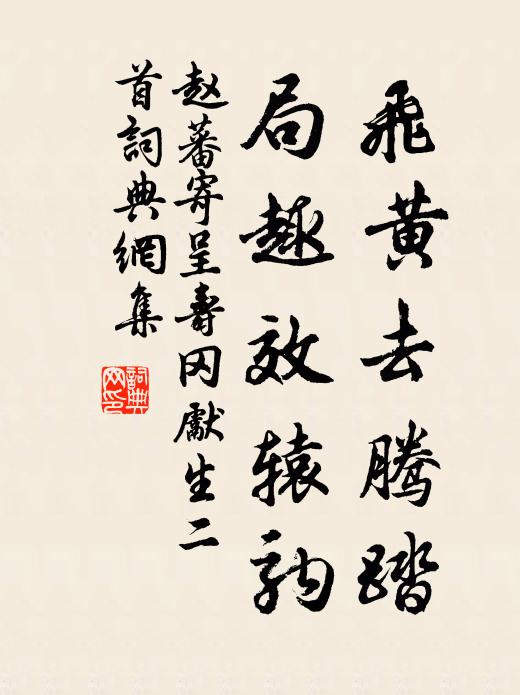 飛黄去腾踏
局趣效辕駒
赵蕃寄呈壽冈獻生二
首詞典網集
詞典
網印